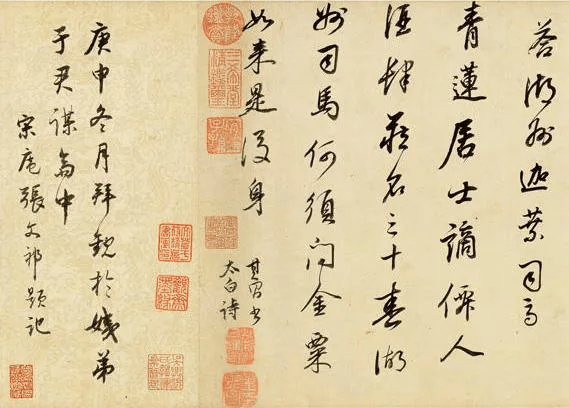 荅湖州迦葉司馬
青蓮居士謫僊人
酒肆藏名三十春湖
州司馬何須問金粟
如來是後身
其昌書
太白詩
庚申冬月拜觀於姨弟
于君謀齋中
庵張文祁題記